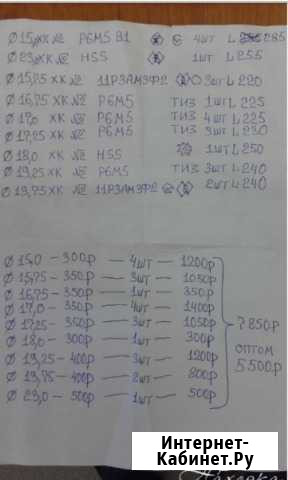 Ø 15,0 ХК №2 Р6М5 В1 4шт L 285
Ø 23,0 ХК №2 HSS 1шт L 255
Ø 15,75 ХК №2 11Р3АМ3Ф2 3шт L 220
Ø 16,75 ХК №2 Р6М5 ТИЗ 1шт L 225
Ø 17,0 ХК №2 Р6М5 ТИЗ 4шт L 225
Ø 17,25 ХК №2 Р6М5 ТИЗ 3шт L 230
Ø 18,0 ХК №2 HSS 1шт L 250
Ø 19,25 ХК №2 Р6М5 ТИЗ 3шт L 240
Ø 19,75 ХК №2 11Р3АМ3Ф2 2шт L 240
Ø 15,0 — 300р — 4шт — 1200р
Ø 15,75 — 350р — 3шт — 1050р
Ø 16,75 — 350р — 1шт — 350р
Ø 17,0 — 350р — 4шт — 1400р
Ø 17,25 — 350р — 3шт — 1050р
Ø 18,0 — 300р — 1шт — 300р
Ø 19,25 — 400р — 3шт — 1200р
Ø 19,75 — 400р — 2шт — 800р
Ø 23,0 — 500р — 1шт — 500р
7850р
оптом
5500р
Интернет-
Кабинет.Ру